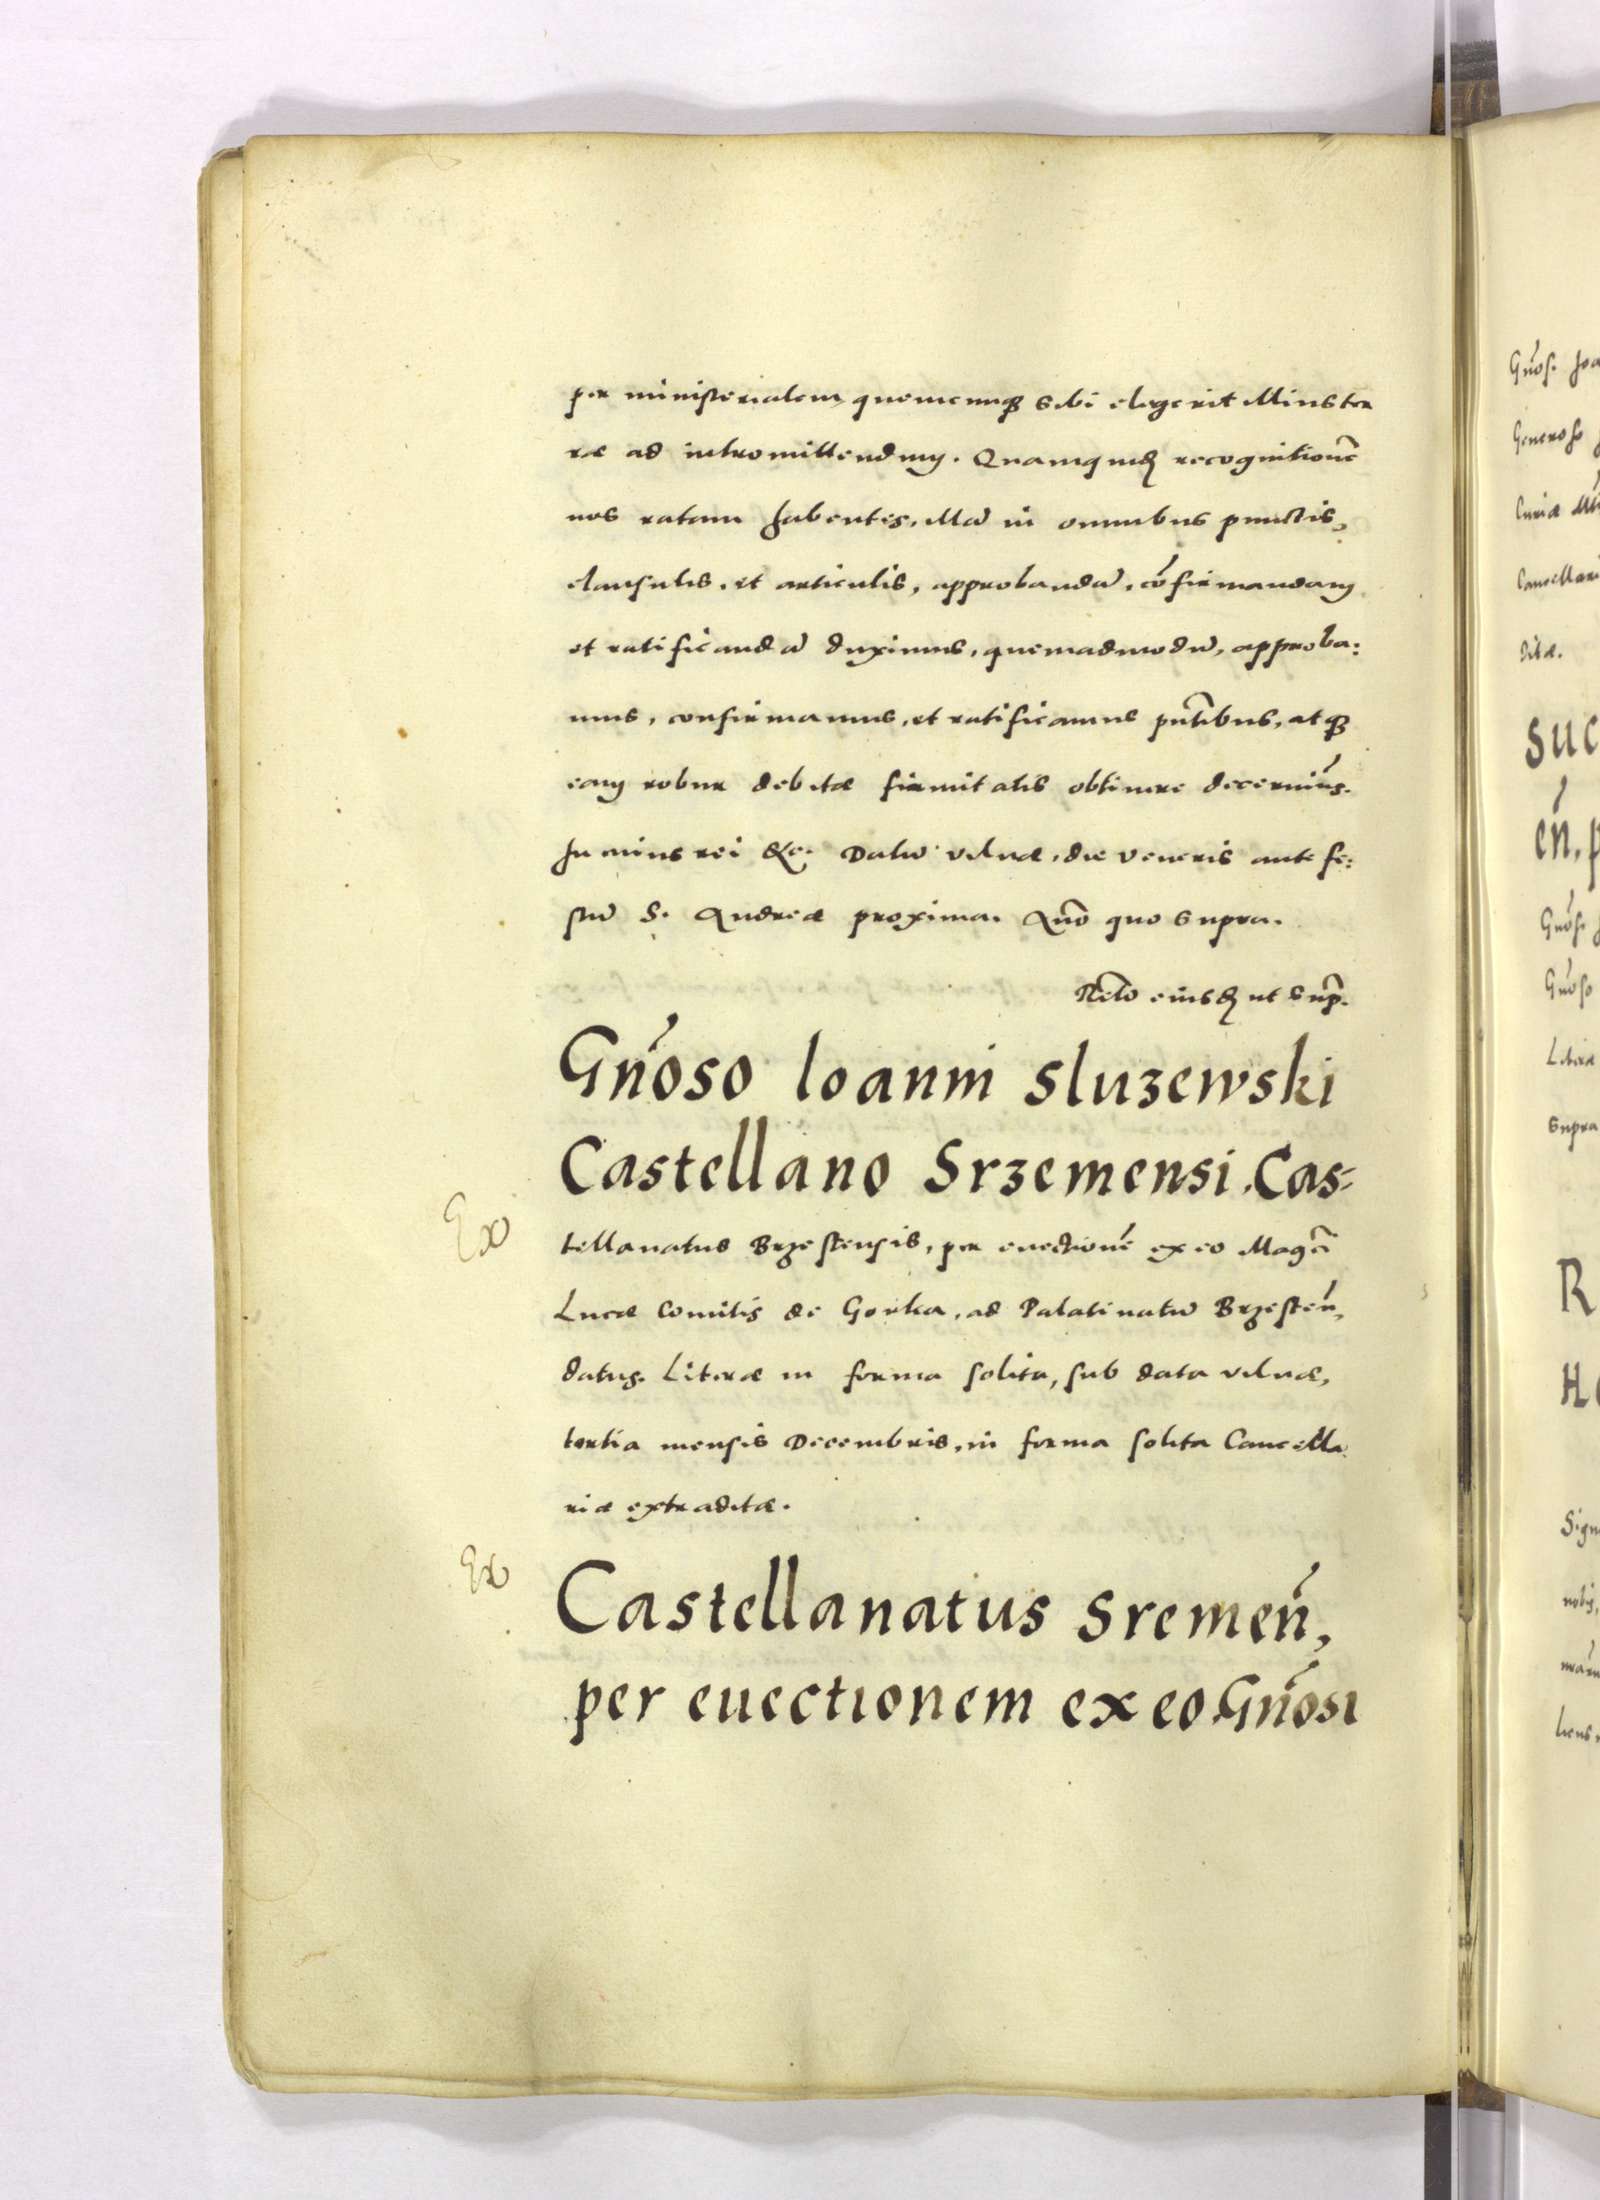 per ministerialem, quemcunqȝ sibi elegerit illius ter
ræ ad intromittendum. Quamquidē recognitionē
nos ratam habentes, illā in omnibus punctis,
clausulis, et articulis, approbandā, cōfirmandam
et ratificandā duximus, quemadmodū, approba:
mus, confirmamus, et ratificamus pn̄tibus, atqȝ
eam robur debitæ firmitatis obtinere decernim̄s.
In cuius rei &c. Datū Vilnæ, die Veneris ante fe:
stū S. Andreæ proxima. Ann̄o quo supra.
Relō eiusdē ut sup̄.
Gn̄oso Ioanni Sluzewski
Castellano Srzemensi, Cas-
Ex
tellanatus Brzestensis, per euectionē ex eo Magci
Lucæ Comitis de Gorka, ad Palatinatū Brzesten̄,
datus. Literæ in forma solita, sub data Vilnæ,
tertia mensis Decembris, in forma solita Cancella
riæ extraditæ.
Ex
Castellanatus Sremen̄,
per euectionem ex eo Gn̄osi
Gn̄os. Joa
Generoso
Curiæ
Cancellari
ditæ.
SUC
en̄, p
Gn̄os.
Gn̄oso
Literæ
supra
R
H
Sign
nobis,